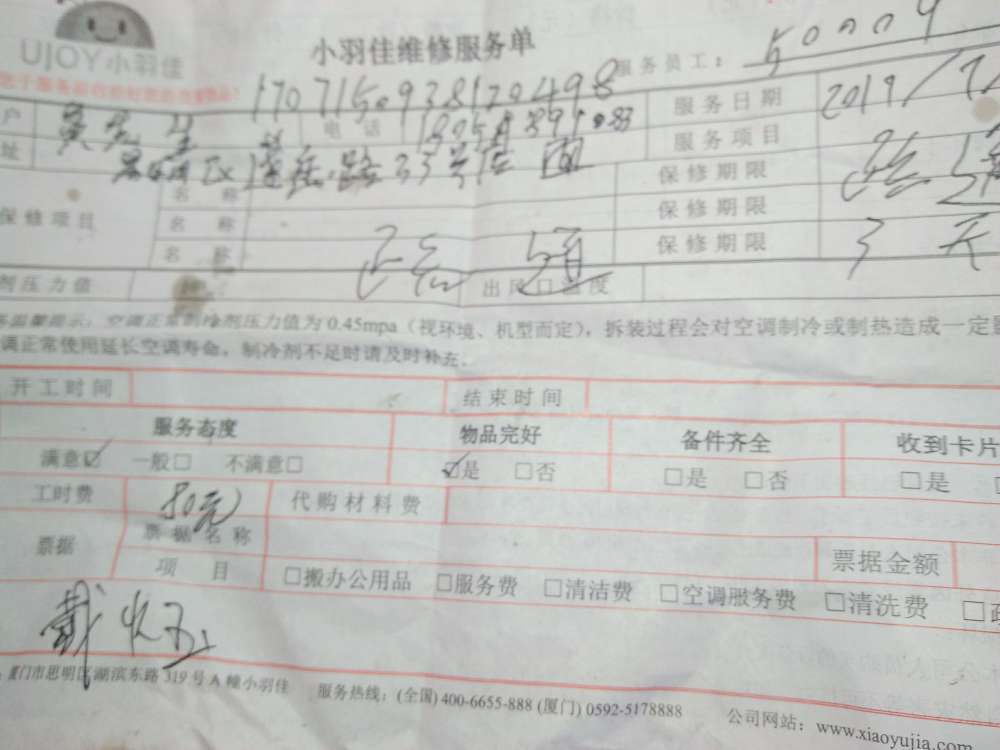 UJOY小羽佳
小羽佳维修服务单
服务员工：50009
1707150938120498
户 电话 服务日期 2019/7/
址 路33号店面 服务项目
名称 保修期限 疏通
保修项目 名称 保修期限
名称 疏通 保修期限 3天
剂压力值 出风口温度
温馨提示：空调正常制冷剂压力值为0.45mpa（视环境、机型而定），拆装过程会对空调制冷或制热造成一定
调正常使用延长空调寿命，制冷剂不足时请及时补充.
开工时间 结束时间
服务态度 物品完好 备件齐全 收到卡片
满意☑ 一般□ 不满意□ ☑是 □否 □是 □否 □是
工时费 80元 代购材料费
票据 票据名称 票据金额
项目 □搬办公用品 □服务费 □清洁费 □空调服务费 □清洗费
戴
厦门市思明区湖滨东路 319号A幢小羽佳 服务热线：(全国) 400-6655-888 (厦门) 0592-5178888 公司网站：www.xiaoyujia.com